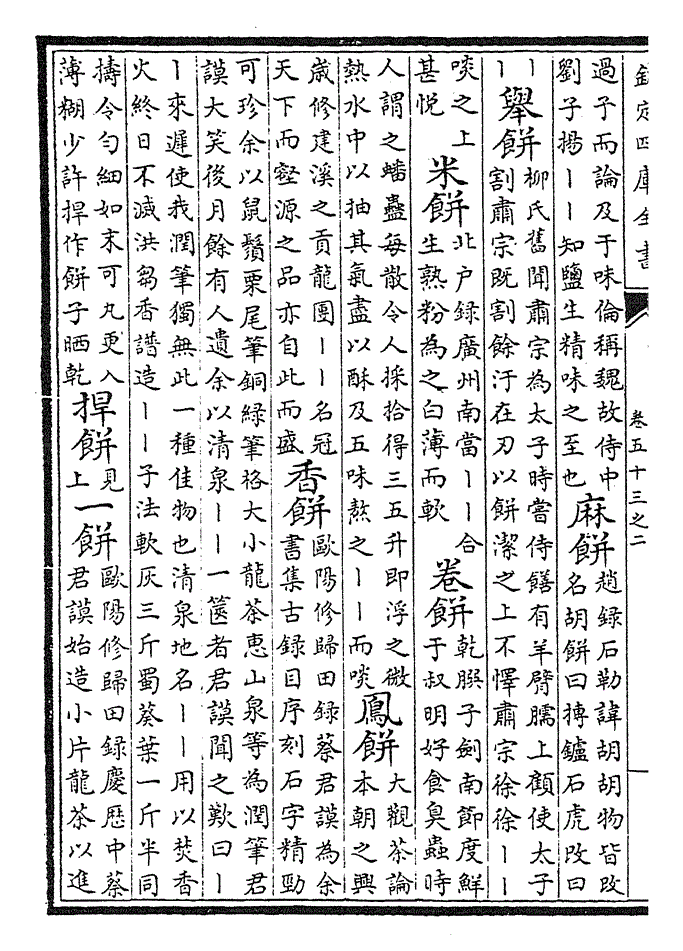 欽定四庫全書
卷五十三之二
過子而論及于味倫稱魏故侍中
劉子揚丨丨知鹽生精味之至也
麻餅
趙録石勒諱胡胡物皆改
名胡餅曰摶鑪石虎改曰
丨
舉餅
柳氏舊聞肅宗為太子時嘗侍饍有羊臂臑上顧使太子
割肅宗既割餘汙在刃以餅潔之上不懌肅宗徐徐丨丨
啖之上
甚悦
米餅
北户録廣州南當丨丨合
生熟粉為之白薄而軟
卷餅
乾𦠆子劍南節度鮮
于叔明好食臭蟲時
人謂之蟠蟲每散令人採拾得三五升即浮之微
熱水中以抽其氣盡以酥及五味熬之丨丨而啖
鳳餅
大觀茶論
本朝之興
嵗修建溪之貢龍團丨丨名冠
天下而壑源之品亦自此而盛
香餅
歐陽修歸田録蔡君謨為余
書集古録目序刻石字精勁
可珍余以鼠鬚栗尾筆銅緑筆格大小龍茶惠山泉等為潤筆君
謨大笑後月餘有人遺余以清泉丨丨一篋者君謨聞之歎曰丨
丨來遲使我潤筆獨無此一種佳物也清泉地名丨丨用以焚香
火終日不滅洪芻香譜造丨丨子法軟灰三斤蜀葵葉一斤半同
擣令匀細如末可丸更入
薄糊少許捍作餅子晒乾
捍餅
見
上
一餅
歐陽修歸田録慶歴中蔡
君謨始造小片龍茶以進